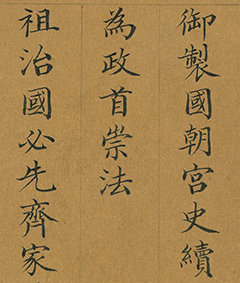 御製國朝宮史續
為政首崇法
祖治國必先齊家